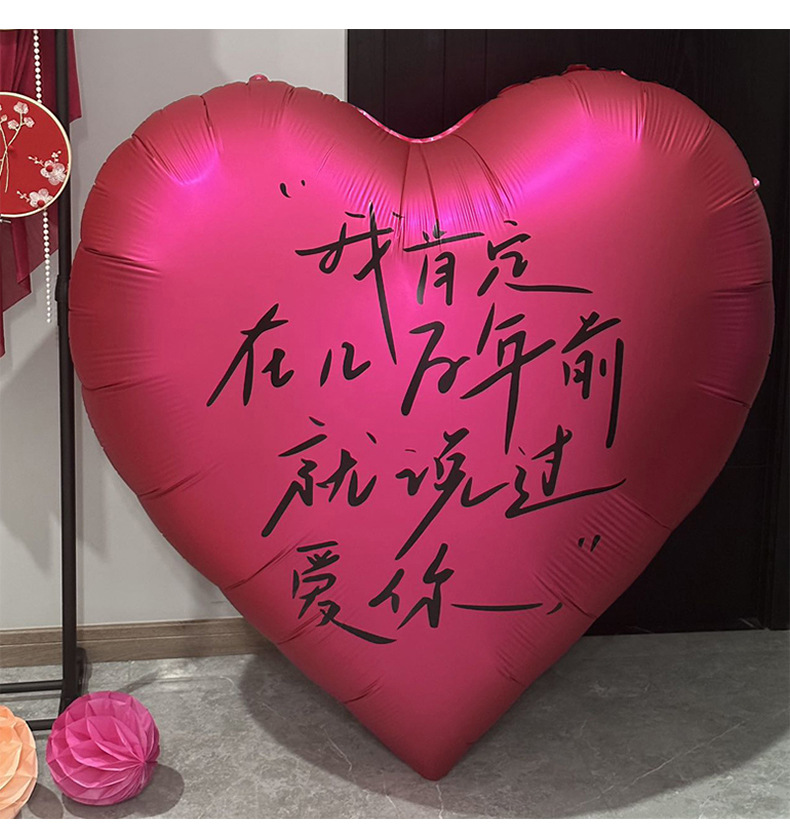 "我肯定
在几万年前
就说过
爱你,"